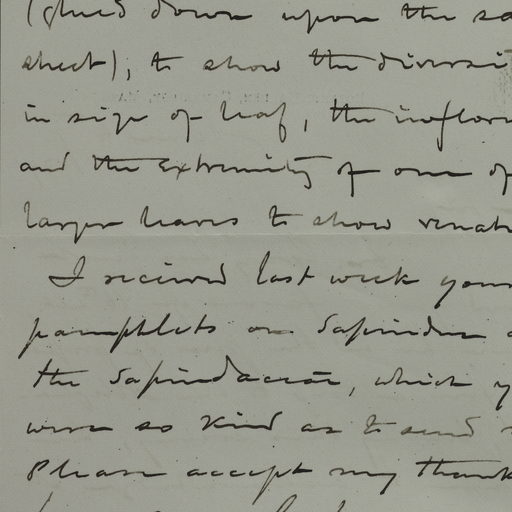 (glued down upon the sa
sheet), to show the diversi
in size of leaf, the inflor
and the extremity of one of
larger leaves to show venat
I received last week your
pamphlets on Sapindus
the Sapindaceae, which y
were so kind as to send
Please accept my thank